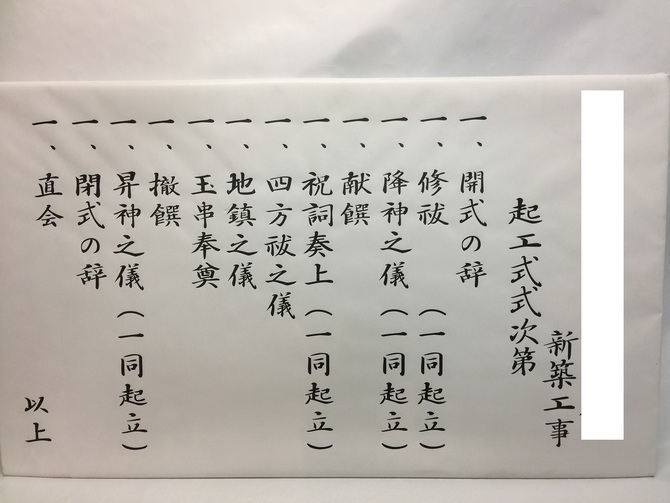 新築工事
起工式式次第
一、開式の辞
一、修祓（一同起立）
一、降神之儀（一同起立）
一、献饌
一、祝詞奏上（一同起立）
一、四方祓之儀
一、地鎮之儀
一、玉串奉奠
一、撤饌
一、昇神之儀（一同起立）
一、閉式の辞
一、直会
以上